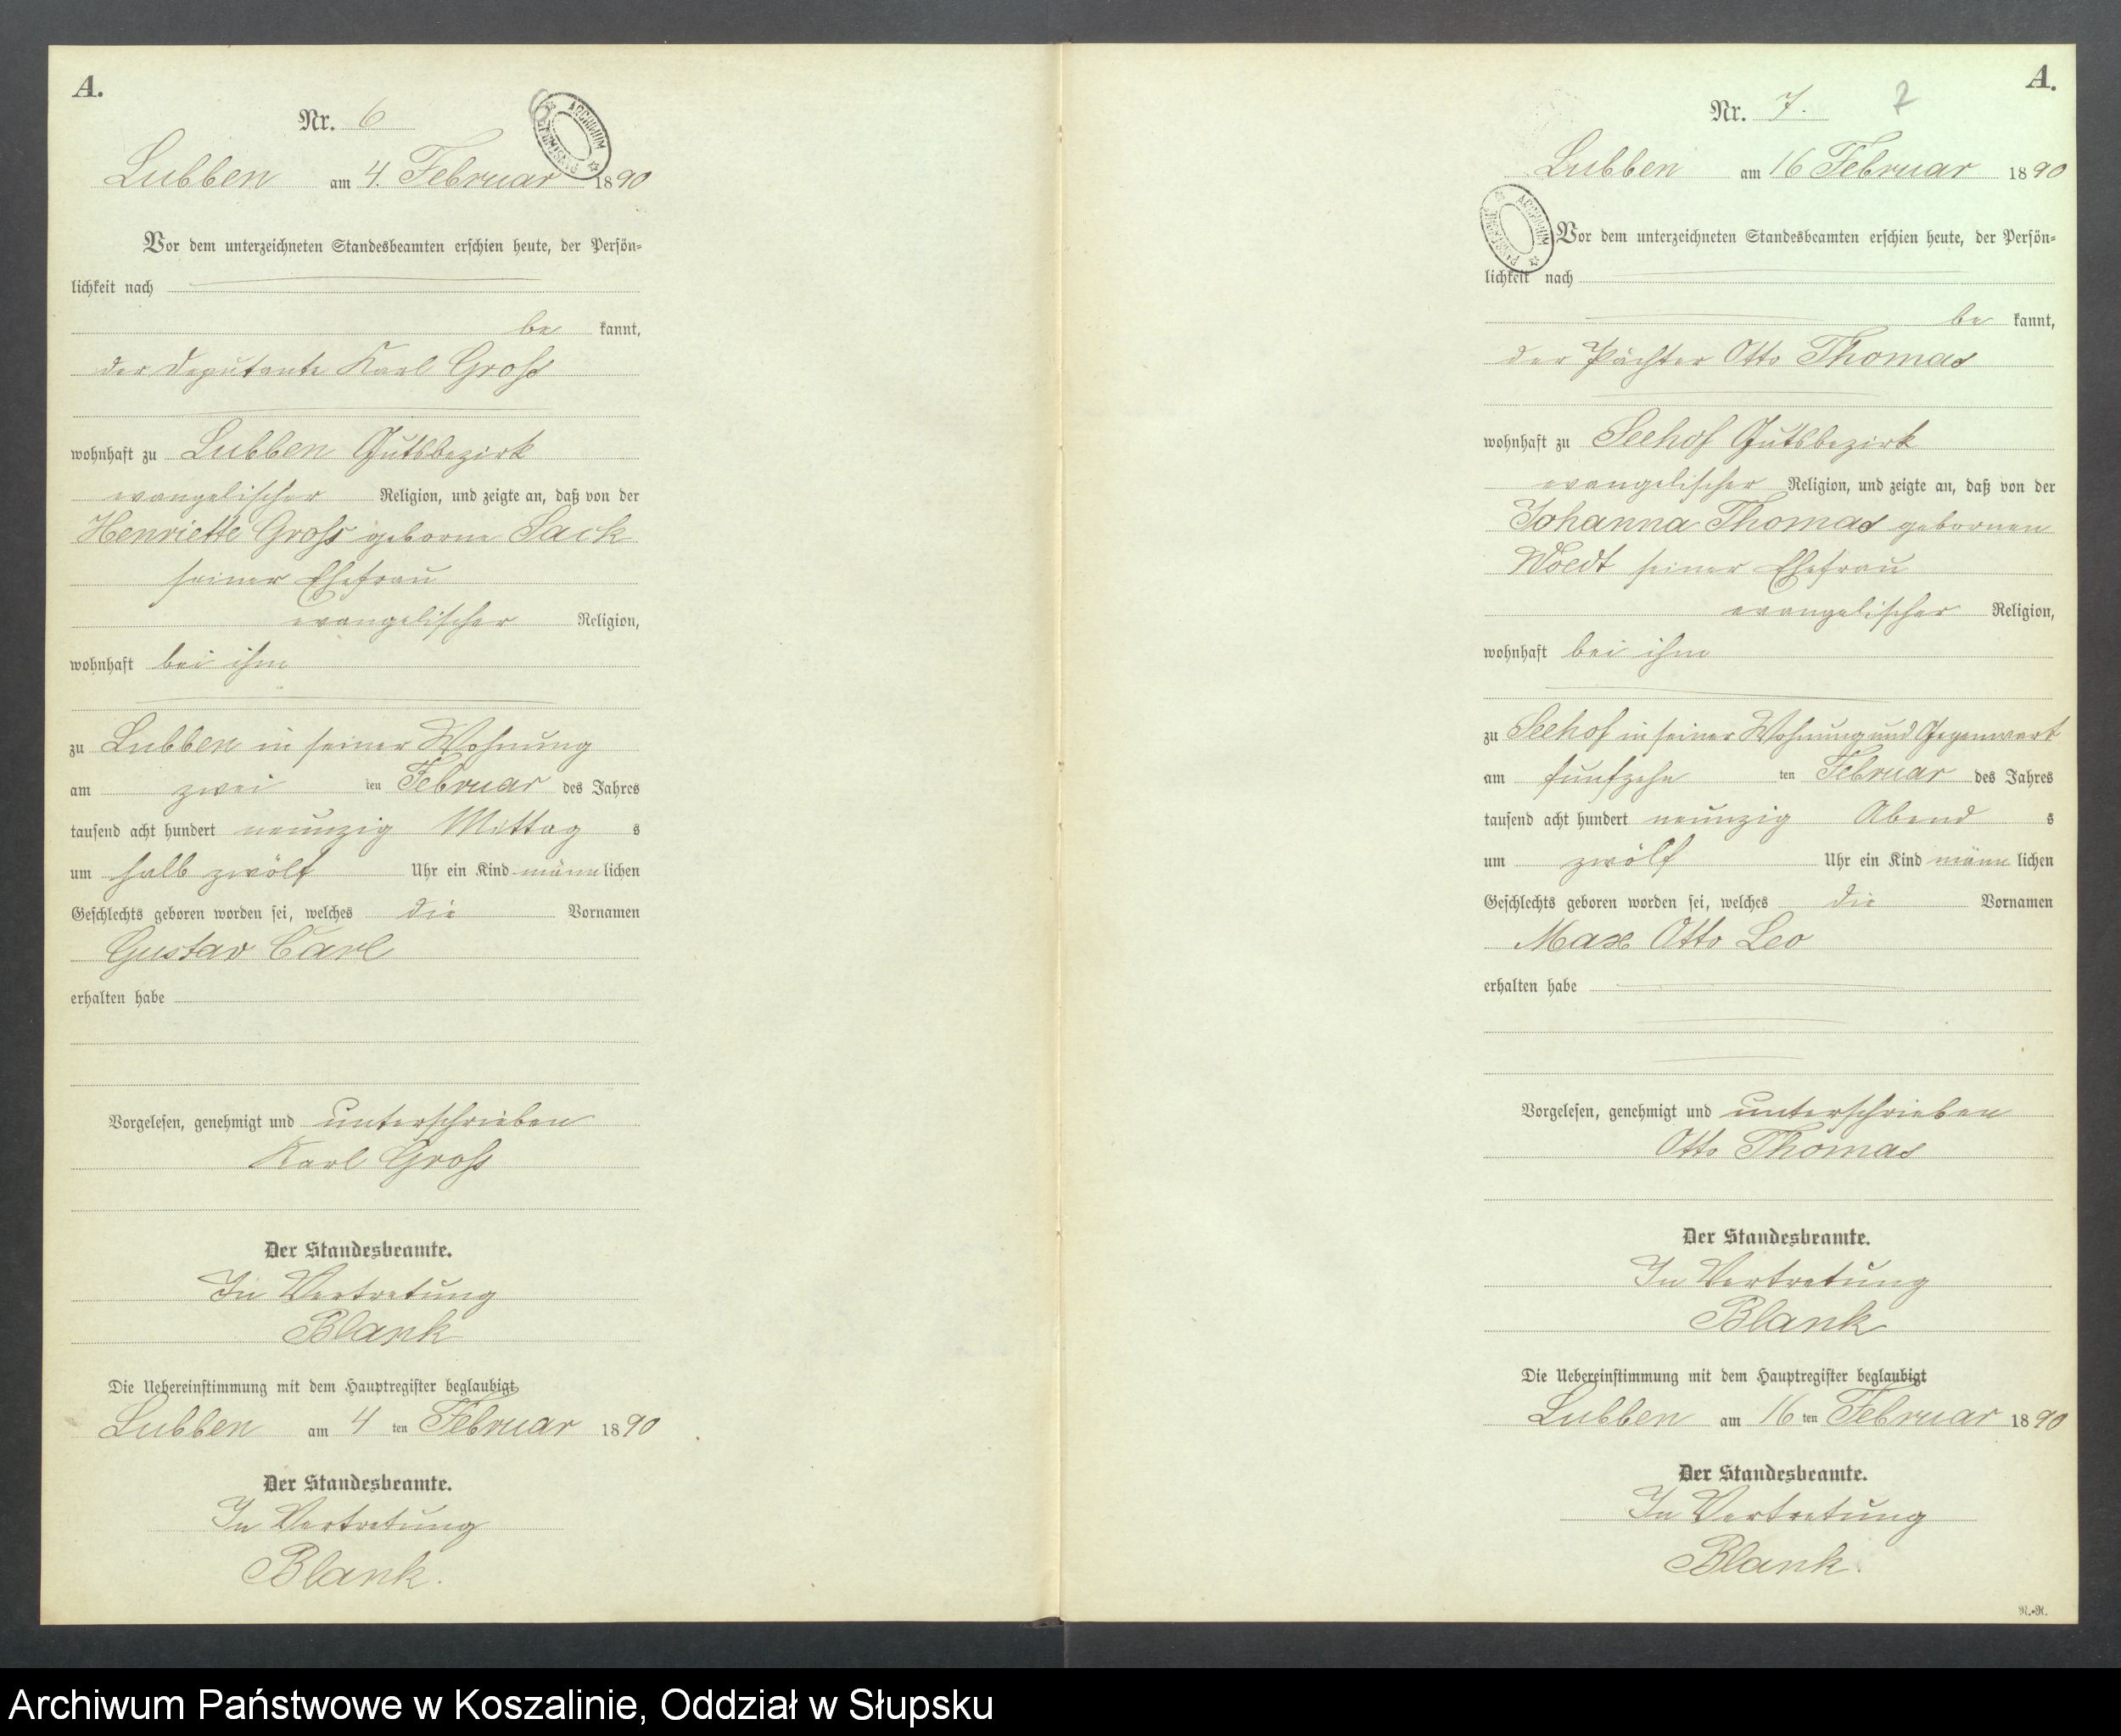 A.
6
Nr. 6
ARCHIWUM PAŃSTWOWE
Lubben am 4. Februar 1890
Vor dem unterzeichneten Standesbeamten erschien heute, der Persön=
lichkeit nach
be kannt,
der Deputante Karl Groß
wohnhaft zu Lubben Gutsbezirk
evangelischer Religion, und zeigte an, daß von der
Henriette Groß geborne Sack
seiner Ehefrau
evangelischer Religion,
wohnhaft bei ihm
zu Lubben in seiner Wohnung
am zwei ten Februar des Jahres
tausend acht hundert neunzig Mittag s
um halb zwölf Uhr ein Kind männlichen
Geschlechts geboren worden sei, welches die Vornamen
Gustav Carl
erhalten habe
Vorgelesen, genehmigt und unterschrieben
Karl Groß
Der Standesbeamte.
In Vertretung
Blank
Die Uebereinstimmung mit dem Hauptregister beglaubigt
Lubben am 4 ten Februar 1890
Der Standesbeamte.
In Vertretung
Blank.
A.
7
Nr. 7.
Lubben am 16 Februar 1890
ARCHIWUM PAŃSTWOWE
Vor dem unterzeichneten Standesbeamten erschien heute, der Persön=
lichkeit nach
be kannt,
der Pächter Otto Thomas
wohnhaft zu Seehof Gutsbezirk
evangelischer Religion, und zeigte an, daß von der
Johanna Thomas gebornen
Woedt seiner Ehefrau
evangelischer Religion,
wohnhaft bei ihm
zu Seehof in seiner Wohnung und Gegenwart
am funfzehn ten Februar des Jahres
tausend acht hundert neunzig Abend s
um zwölf Uhr ein Kind männ lichen
Geschlechts geboren worden sei, welches die Vornamen
Max Otto Leo
erhalten habe
Vorgelesen, genehmigt und unterschrieben
Otto Thomas
Der Standesbeamte.
In Vertretung
Blank
Die Uebereinstimmung mit dem Hauptregister beglaubigt
Lubben am 16 ten Februar 1890
Der Standesbeamte.
In Vertretung
Blank.
R.-R.
Archiwum Państwowe w Koszalinie, Oddział w Słupsku